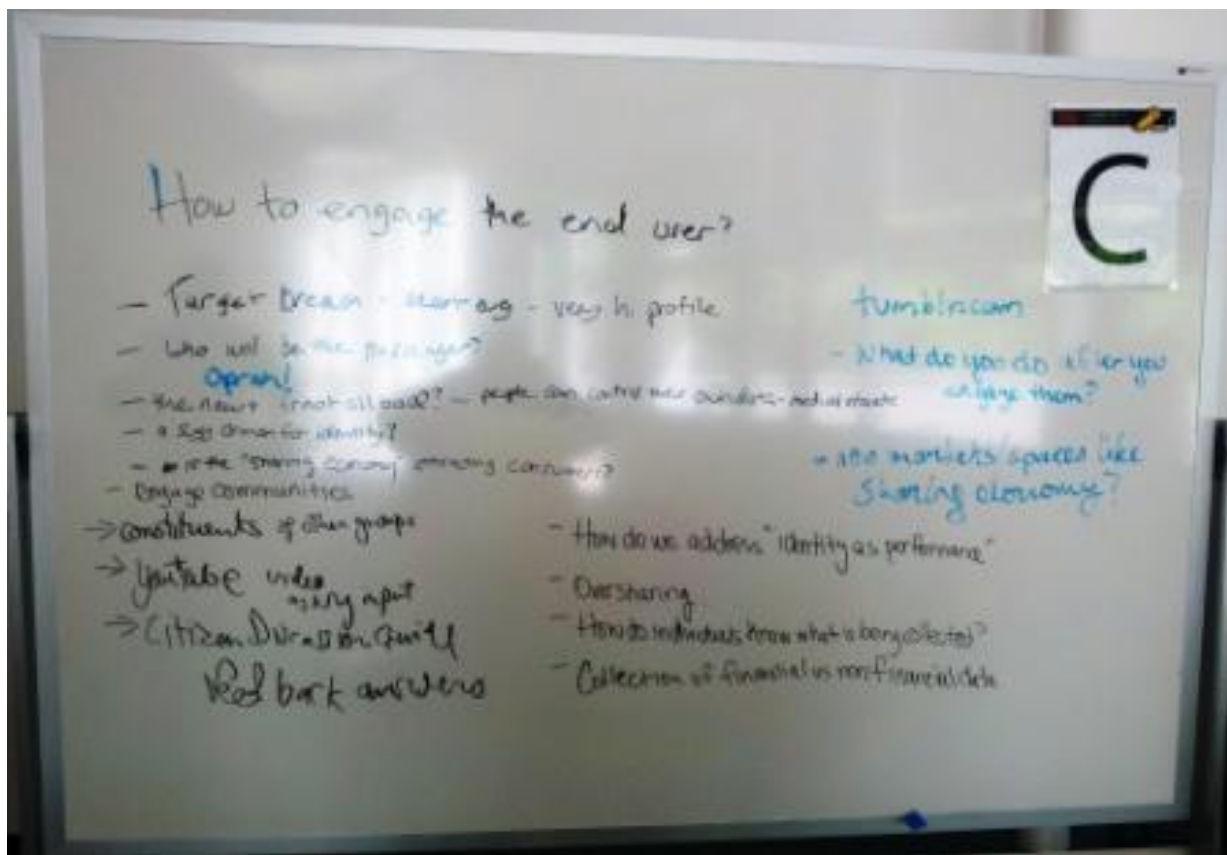 C
How to engage the end user?
- Target Breach - - very hi profile
- Who will be the messenger?
Oprah!
- the news is not all bad? - people can control their own data -
- a for identity?
- is the "sharing economy" consumers?
- Engage communities
→ constituents of other groups
→ Youtube video asking input
→ Citizen
Feed back answers
tumblr.com
- What do you do after you
engage them?
- markets/spaces like
Sharing economy?
- How do we address "identity as performance"
- Oversharing
- How do individuals know what is being collected?
- Collection of financial vs non financial data